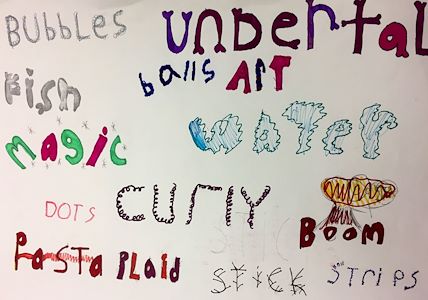 BUBBLES UNDENTAL
balls ART
Fish
magic WATer
DOTS CURlY
BOOM
PASTA PlAid STICK STripS